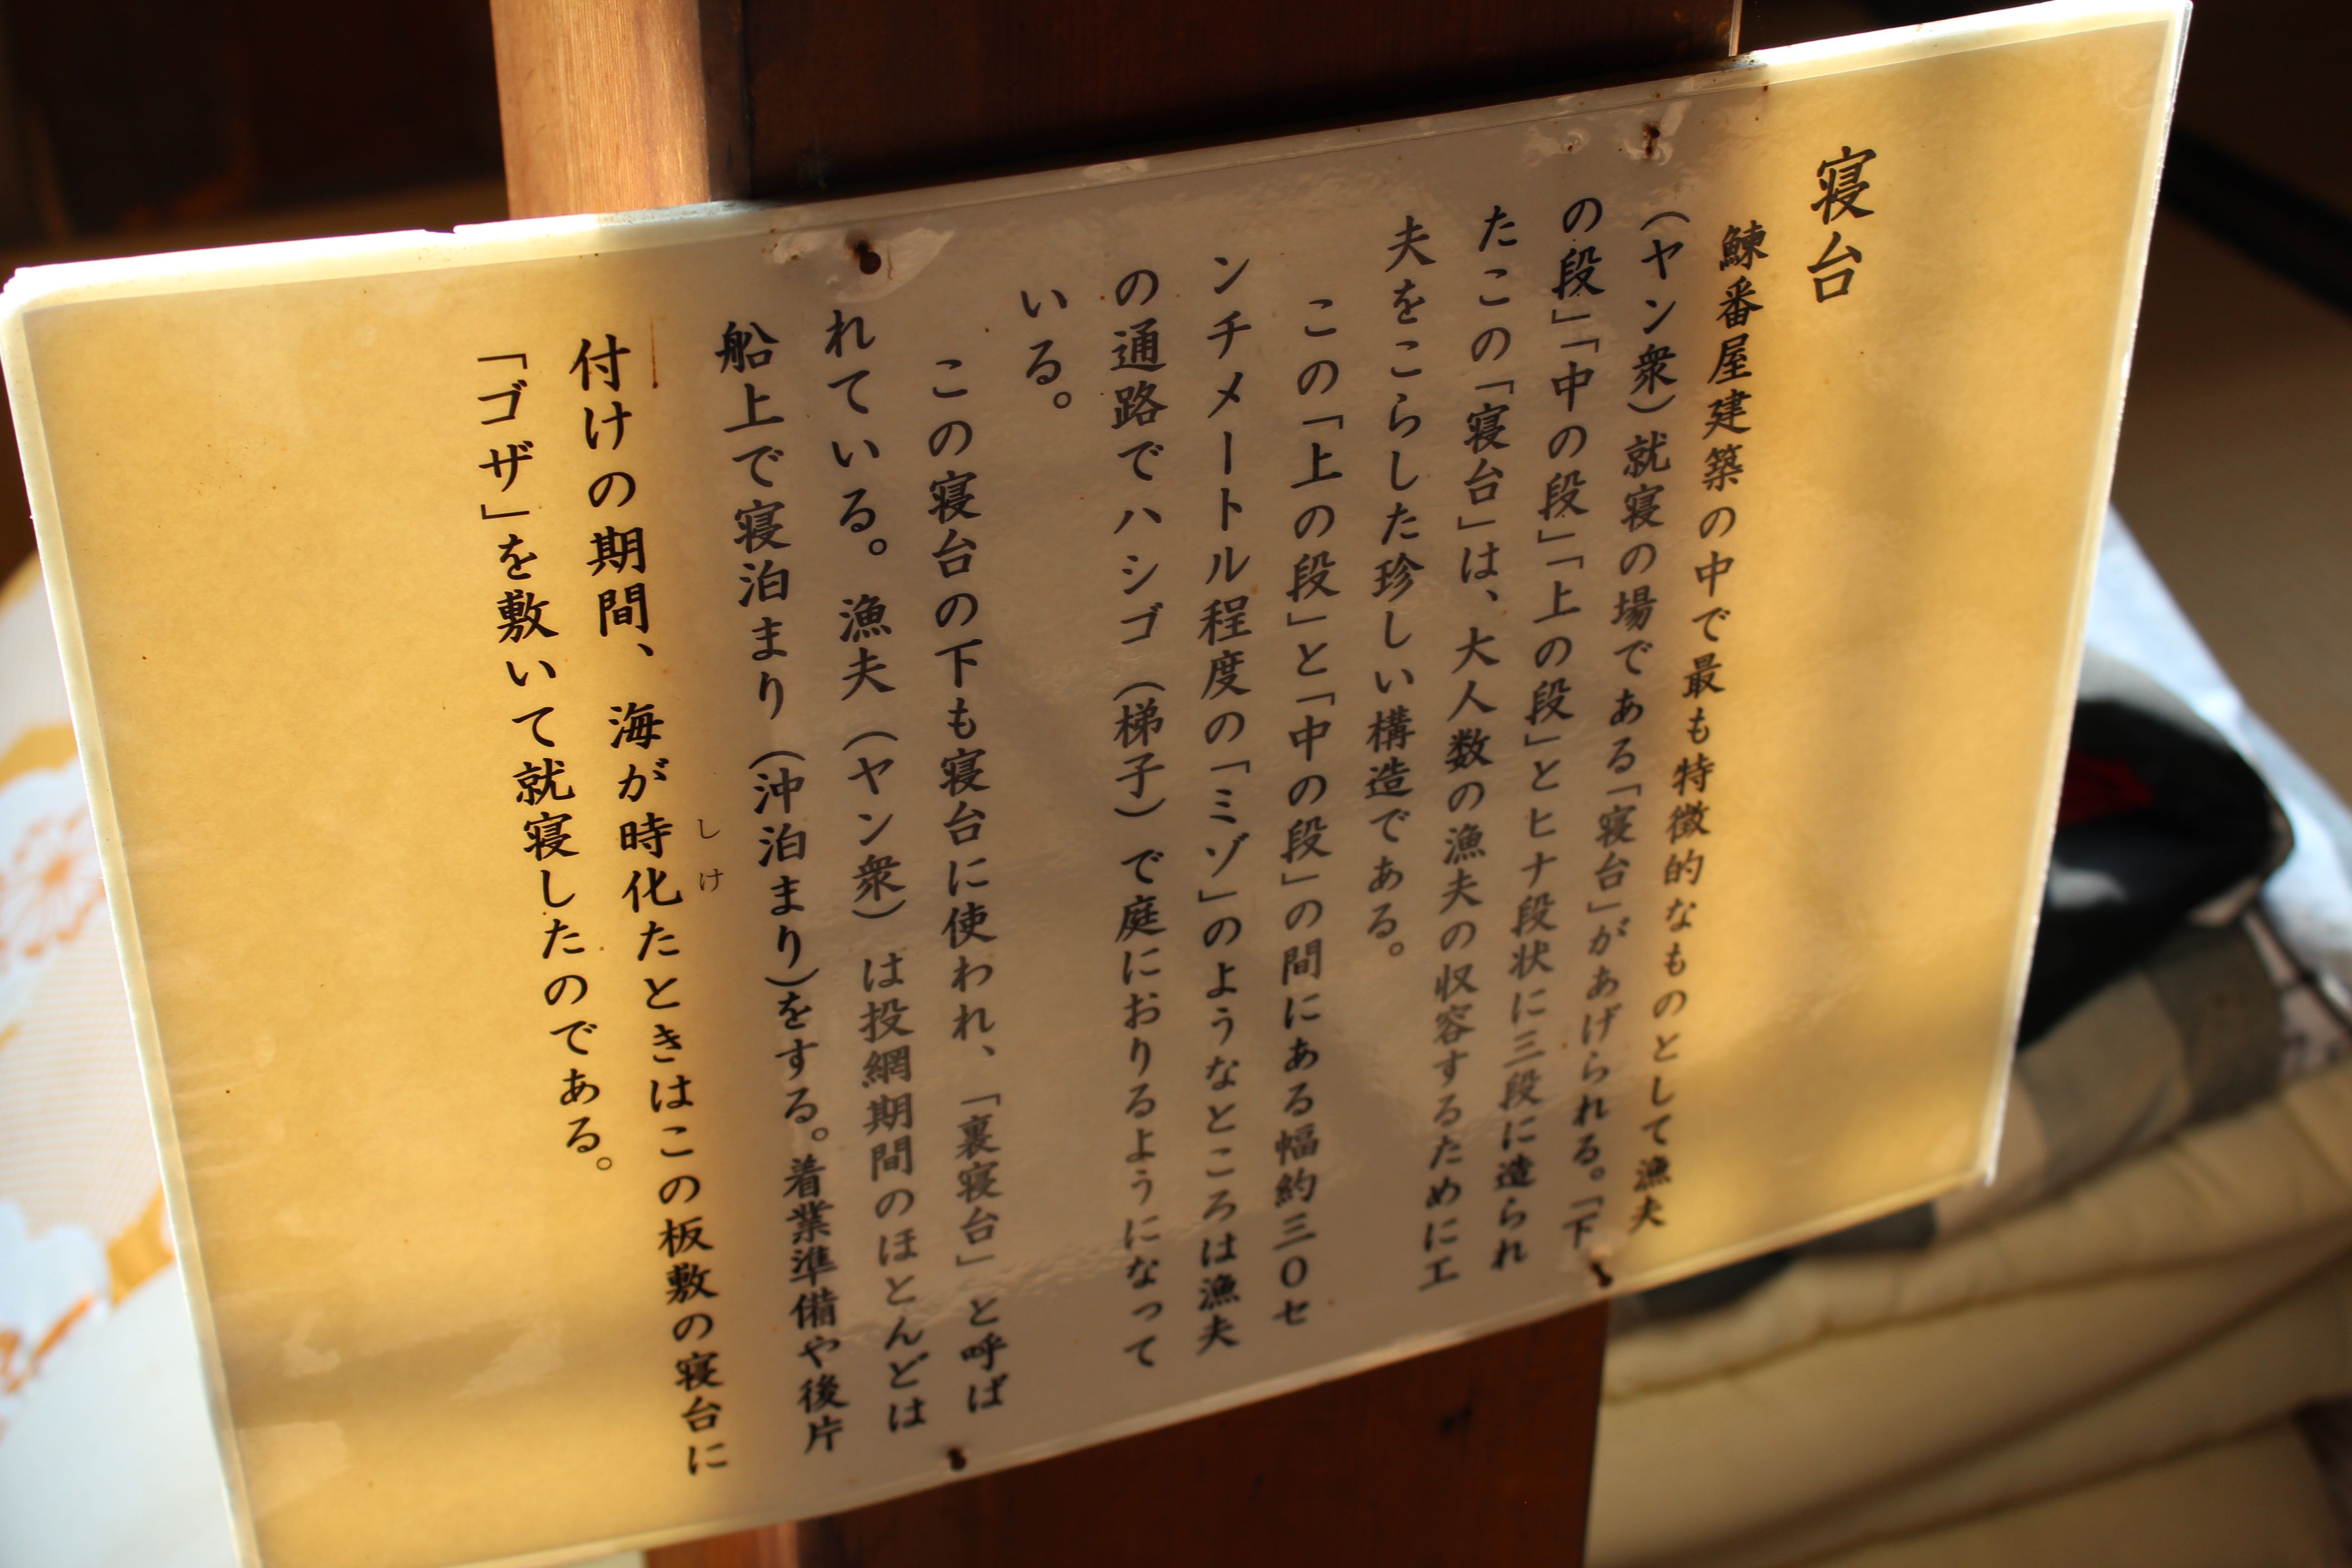 寝台
鰊番屋建築の中で最も特徴的なものとして漁夫
（ヤン衆）就寝の場である「寝台」があげられる。「下
の段」「中の段」「上の段」とヒナ段状に三段に造られ
たこの「寝台」は、大人数の漁夫の収容するためにエ
夫をこらした珍しい構造である。
この「上の段」と「中の段」の間にある幅約三〇セ
ンチメートル程度の「ミゾ」のようなところは漁夫
の通路でハシゴ（梯子）で庭におりるようになって
いる。
この寝台の下も寝台に使われ、「裏寝台」と呼ば
れている。漁夫（ヤン衆）は投網期間のほとんどは
船上で寝泊まり（沖泊まり）をする。着業準備や後片
付けの期間、海が時化たときはこの板敷の寝台に
しけ
「ゴザ」を敷いて就寝したのである。